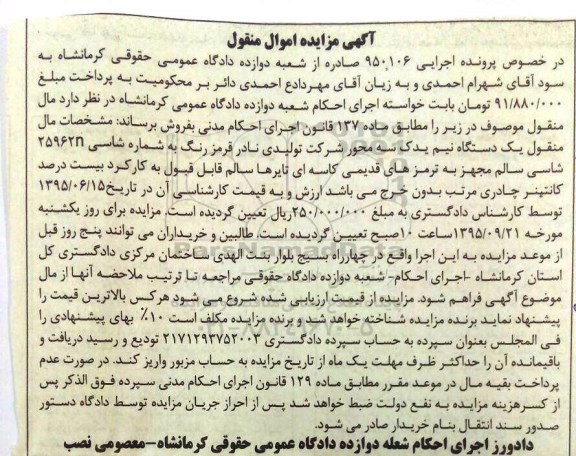 آگهی مزایده اموال منقول
در خصوص پرونده اجرایی ۹۵۰۱۰۶ صادره از شعبه دوازده دادگاه عمومی حقوقی کرمانشاه به
سود آقای شهرام احمدی و به زیان آقای مهردادع احمدی دائر بر محکومیت به پرداخت مبلغ
۹۱/۸۸۰/۰۰۰ تومان بابت خواسته اجرای احکام شعبه دوازده دادگاه عمومی کرمانشاه در نظر دارد مال
منقول موصوف در زیر را مطابق ماده ۱۳۷ قانون اجرای احکام مدنی بفروش برساند: مشخصات مال
منقول یک دستگاه نیم یدک سه محور شرکت تولیدی نادر قرمز رنگ به شماره شاسی ۲۵۹۶۲n
شاسی سالم مجهز به ترمز های قدیمی کاسه ای تایرها سالم قابل قبول به کارکرد بیست درصد
کانتینر چادری مرتب بدون خرج می باشد ارزش و به قیمت کارشناسی آن در تاریخ۱۳۹۵/۰۶/۱۵
توسط کارشناس دادگستری به مبلغ ۲۵۰/۰۰۰/۰۰۰ریال تعیین گردیده است. مزایده برای روز یکشنبه
مورخه ۱۳۹۵/۰۹/۲۱ساعت ۱۰صبح تعیین گردیده است. طالبین و خریداران می توانند پنج روز قبل
از موعد مزایده به این اجرا واقع در چهارراه بسیج بلوار بنت الهدی ساختمان مرکزی دادگستری کل
استان کرمانشاه -اجرای احکام- شعبه دوازده دادگاه حقوقی مراجعه تا ترتیب ملاحضه آنها از مال
موضوع آگهی فراهم شود. مزایده از قیمت ارزیابی شده شروع می شود هرکس بالاترین قیمت را
پیشنهاد نماید برنده مزایده شناخته خواهد شد و برنده مزایده مکلف است ۱۰٪ بهای پیشنهادی را
فی المجلس بعنوان سپرده به حساب سپرده دادگستری ۲۱۷۱۲۹۳۷۵۲۰۰۳ تودیع و رسید دریافت و
باقیمانده آن را حداکثر ظرف مهلت یک ماه از تاریخ مزایده به حساب مزبور واریز کند. در صورت عدم
پرداخت بقیه مال در موعد مقرر مطابق ماده ۱۲۹ قانون اجرای احکام مدنی سپرده فوق الذکر پس
از کسرهزینه مزایده به نفع دولت ضبط خواهد شد پس از احراز جریان مزایده توسط دادگاه دستور
صدور سند انتقال بنام خریدار صادر می شود.
دادورز اجرای احکام شعله دوازده دادگاه عمومی حقوقی کرمانشاه-معصومی نصب